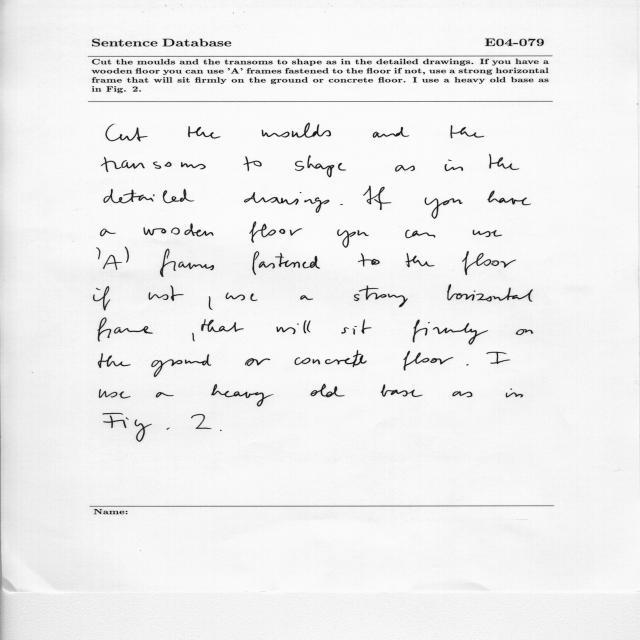 Sentence Database E04-079
Cut the moulds and the transoms to shape as in the detailed drawings. If you have a
wooden floor you can use 'A' frames fastened to the floor if not, use a strong horizontal
frame that will sit firmly on the ground or concrete floor. I use a heavy old base as
in Fig. 2.
Cut the moulds and the
transoms to shape as in the
detailed drawings. If you have
a wooden floor you can use
'A' frames fastened to the floor
if not , use a strong horizontal
frame , that will sit firmly on
the ground or concrete floor. I
use a heavy old base as in
Fig. 2.
Name: